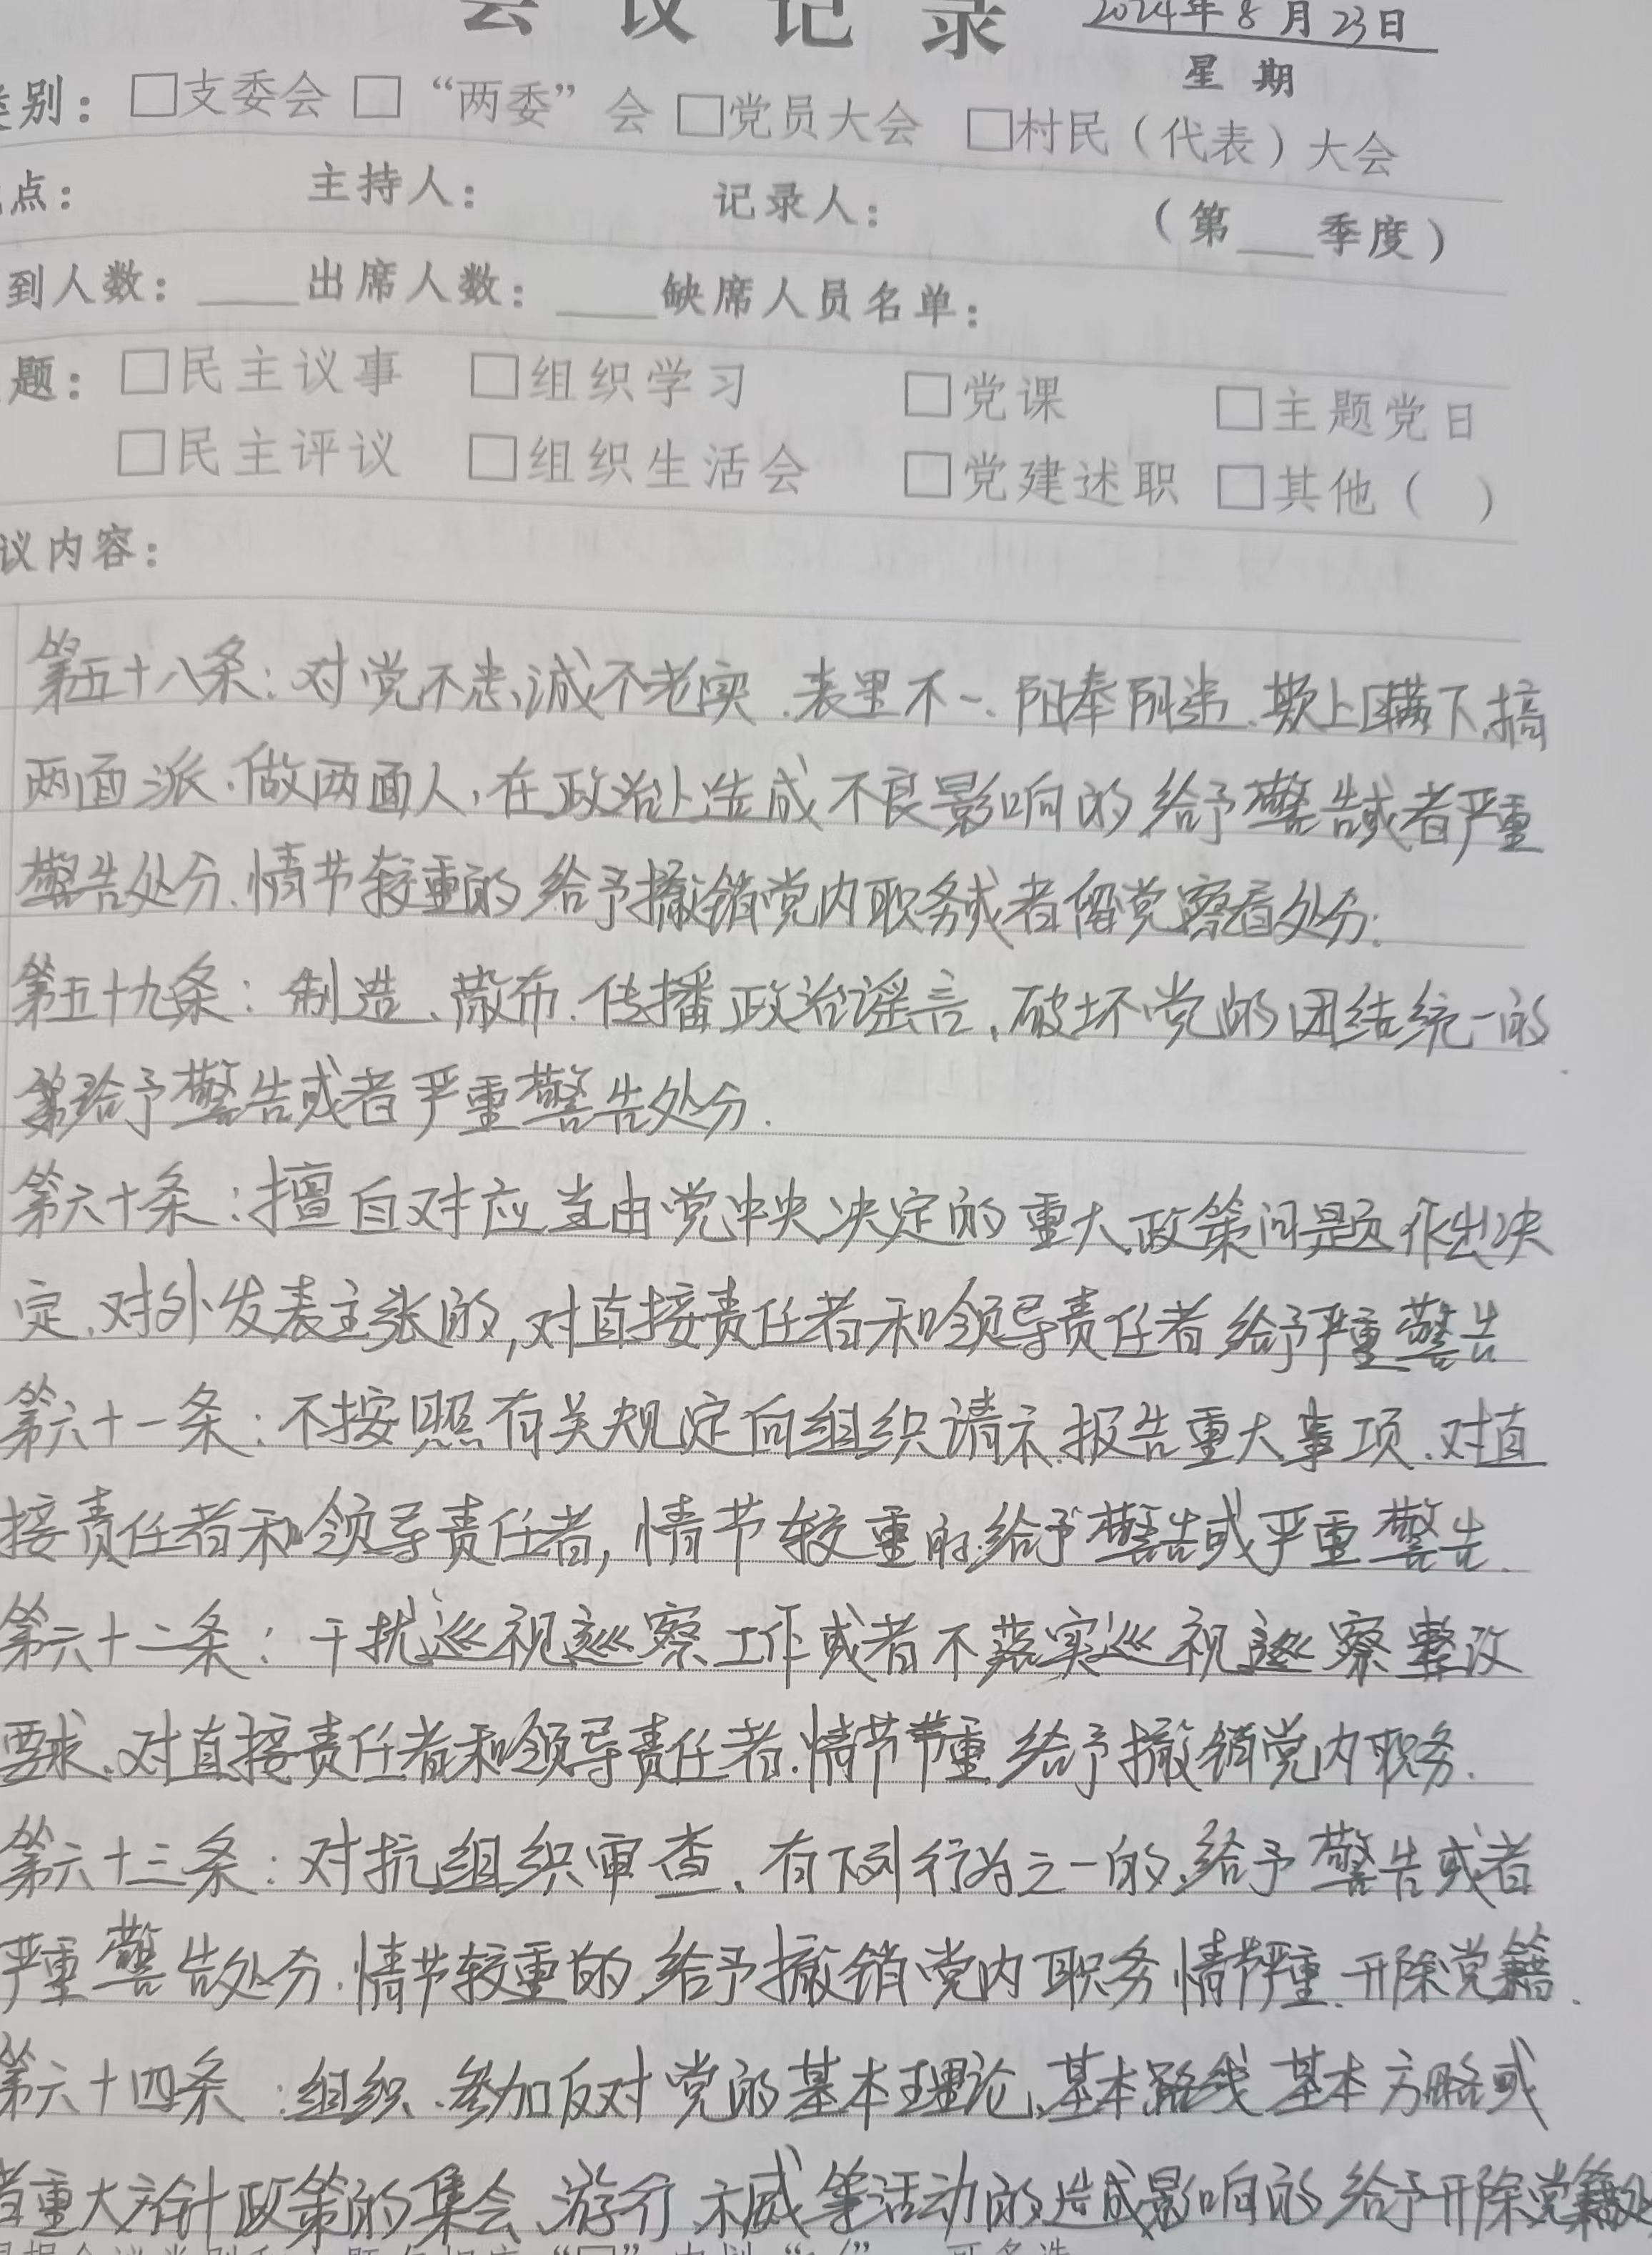 会议记录 2024年8月23日
星期
类别：□支委会 □“两委”会 □党员大会 □村民（代表）大会
点： 主持人： 记录人： （第___季度）
到人数：____出席人数：____缺席人员名单：
题：□民主议事 □组织学习 □党课 □主题党日
□民主评议 □组织生活会 □党建述职 □其他（ ）
议内容：
第五十八条：对党不忠诚不老实、表里不一、阳奉阴违、欺上瞒下，搞
两面派、做两面人，在政治上造成不良影响的给予警告或者严重
警告处分、情节较重的给予撤销党内职务或者留党察看处分.
第五十九条：制造、散布、传播政治谣言、破坏党的团结统一的
给予警告或者严重警告处分.
第六十条：擅自对应当由党中央决定的重大政策问题作出决
定、对外发表主张的,对直接责任者和领导责任者给予严重警告
第六十一条：不按照有关规定向组织请示、报告重大事项、对直
接责任者和领导责任者,情节较重的给予警告或严重警告.
第六十二条：干扰巡视巡察工作或者不落实巡视巡察整改
要求、对直接责任者和领导责任者.情节严重给予撤销党内职务.
第六十三条：对抗组织审查、有下列行为之一的、给予警告或者
严重警告处分.情节较重的给予撤销党内职务情节严重、开除党籍.
第六十四条：组织、参加反对党的基本理论、基本路线基本方略或
者重大方针政策的集会、游行、示威等活动的造成影响的给予开除党籍处